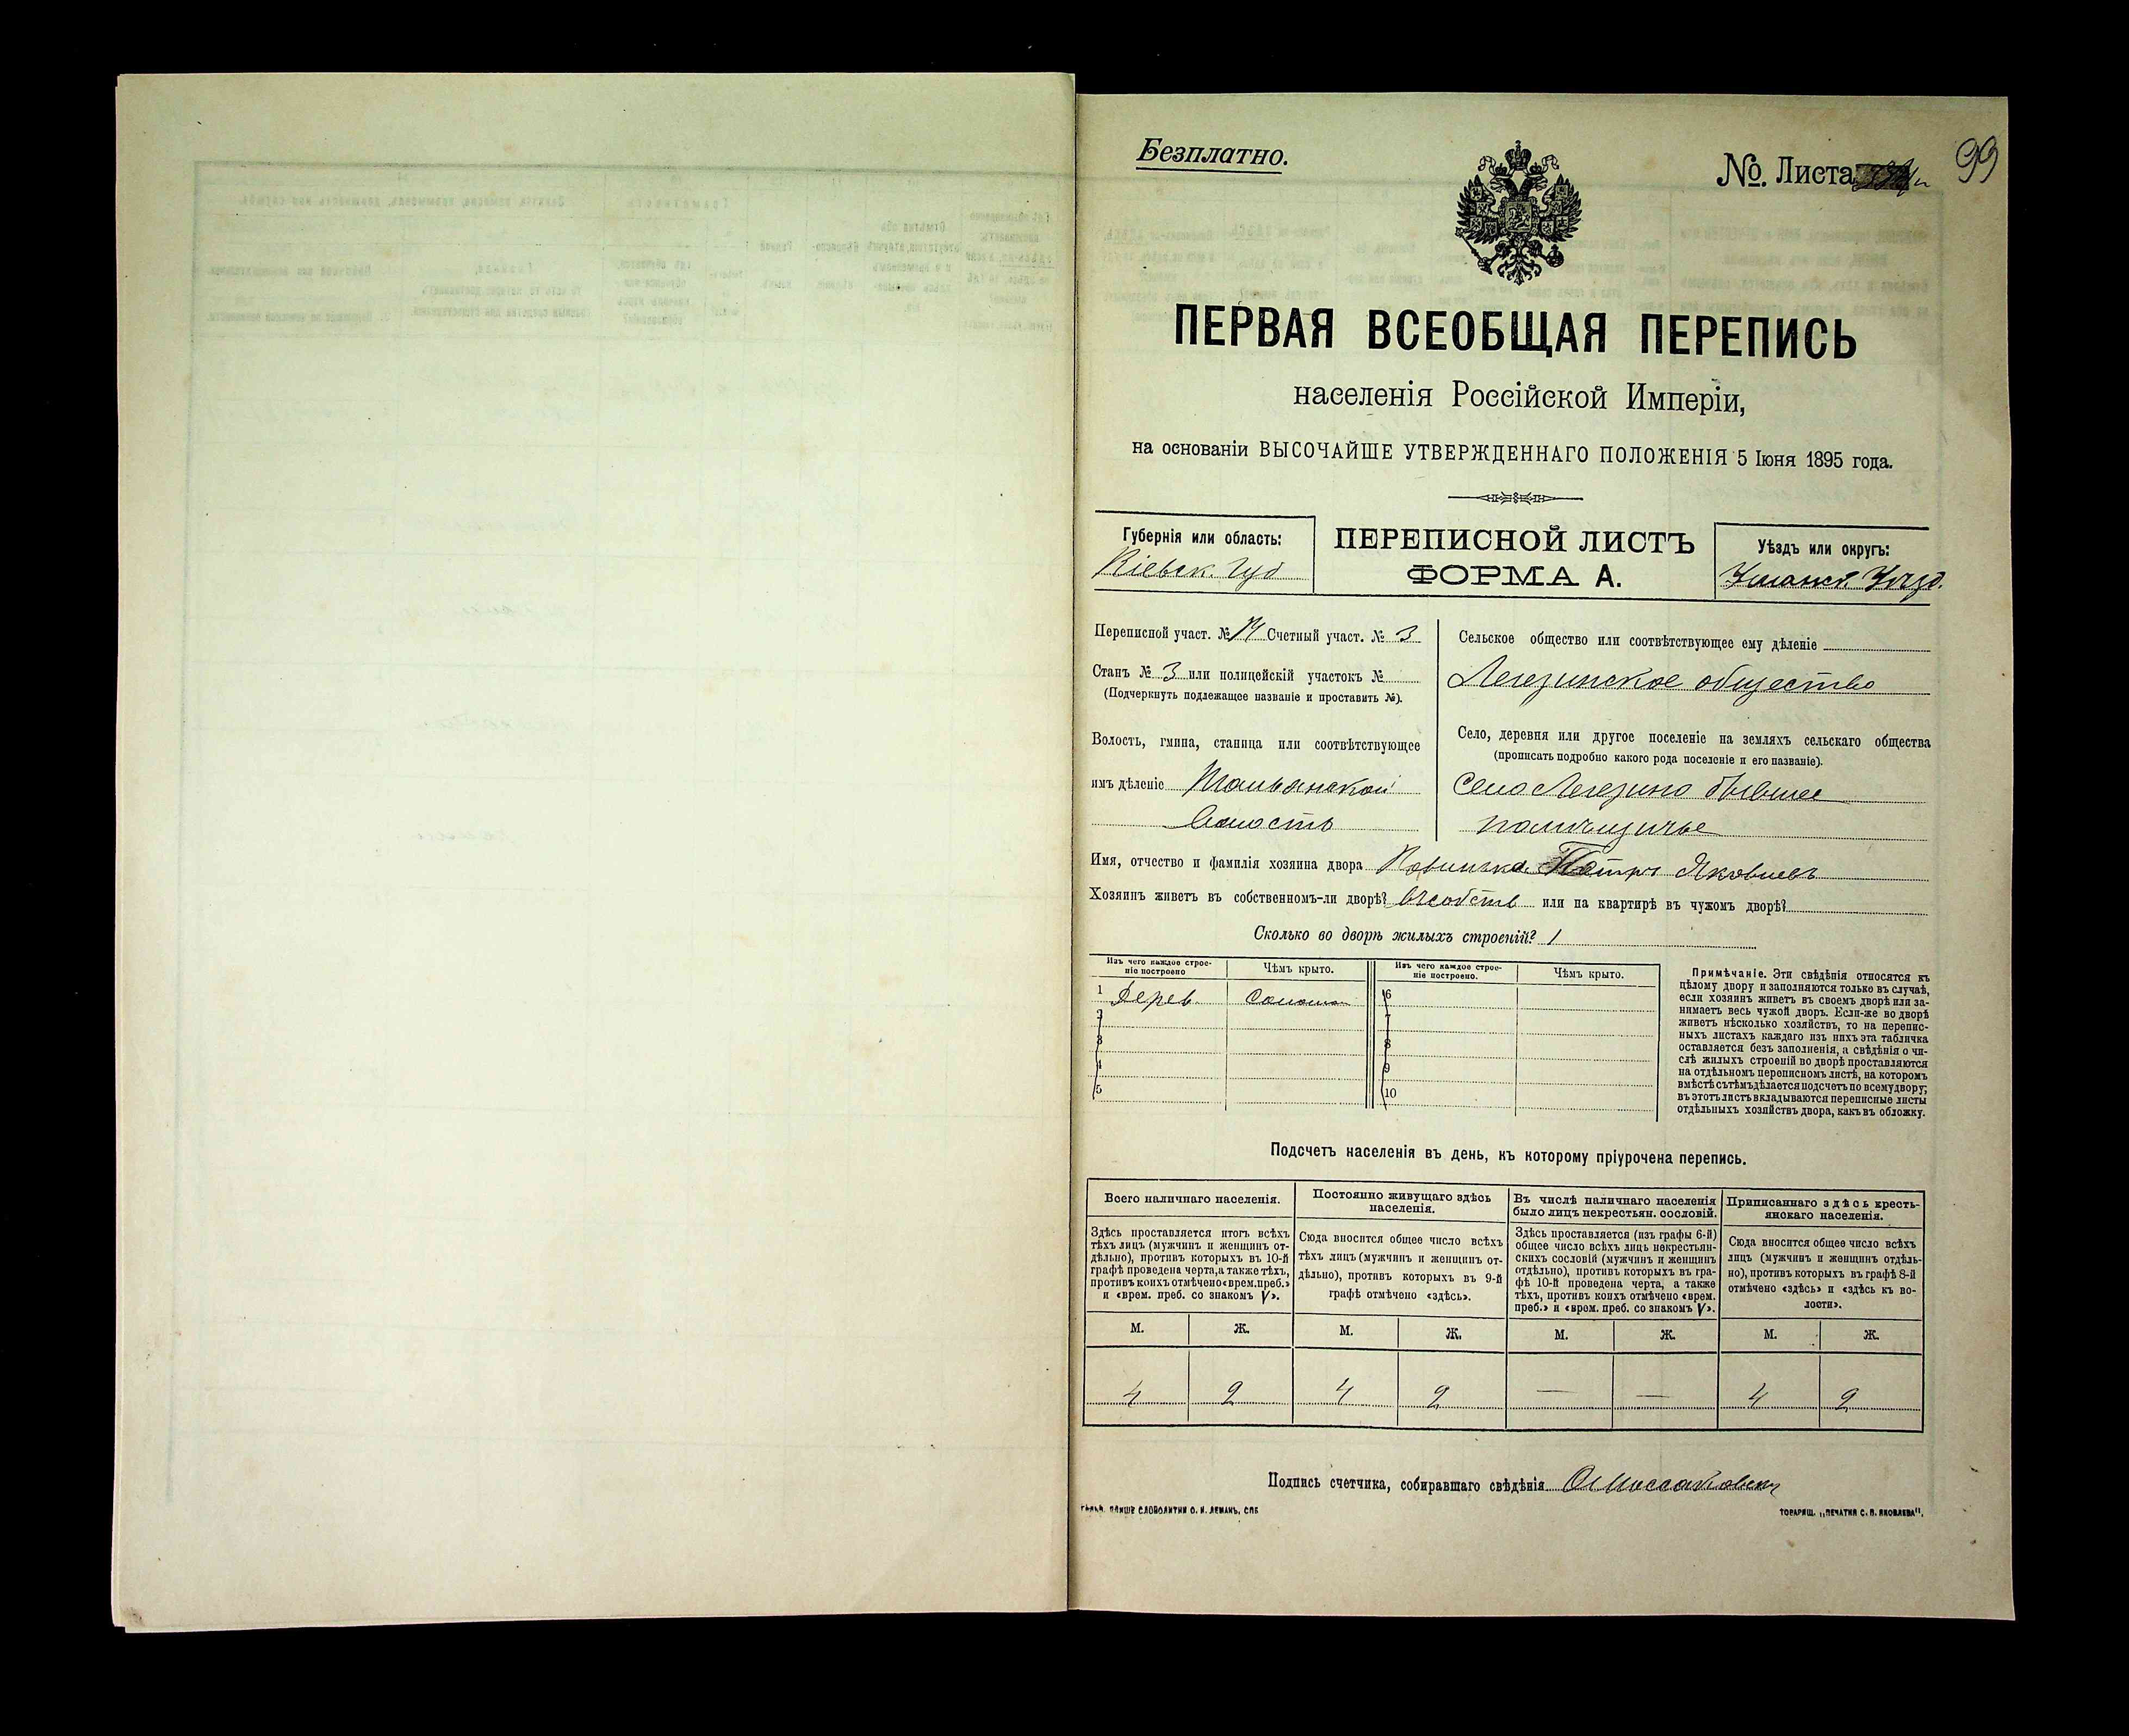 Безплатно.
№. Листа
99
ПЕРВАЯ ВСЕОБЩАЯ ПЕРЕПИСЬ
населенія Россійской Имперіи,
на основаніи ВЫСОЧАЙШЕ УТВЕРЖДЕННАГО ПОЛОЖЕНІЯ 5 Іюня 1895 года.
Губернія или область:
Кіевск. Губ
ПЕРЕПИСНОЙ ЛИСТЪ
ФОРМА А.
Уѣздъ или округъ:
Уманск. Уѣзд.
Переписной участ. № 14 Счетный участ. № 3
Станъ № 3 или полицейскій участокъ №
(Подчеркнуть подлежащее названіе и проставить №).
Волость, гмина, станица или соотвѣтствующее
имъ дѣленіе Тальянской
Волость
Сельское общество или соотвѣтствующее ему дѣленіе
Легезинское общество
Село, деревня или другое поселеніе на земляхъ сельскаго общества
(прописать подробно какого рода поселеніе и его названіе).
Село Легезино бывшее
помѣщичье
Имя, отчество и фамилія хозяина двора Петръ Яковлевъ
Хозяинъ живетъ въ собственномъ-ли дворѣ? въ собств или на квартирѣ въ чужомъ дворѣ?
Сколько во дворѣ жилыхъ строеній? 1
Изъ чего каждое строе-
ніе построено
Чѣмъ крыто.
Изъ чего каждое строе-
ніе построено.
Чѣмъ крыто.
1 Дерев. Солома
2
3
4
5
6
7
8
9
10
Примѣчаніе. Эти свѣдѣнія относятся къ
цѣлому двору и заполняются только въ случаѣ,
если хозяинъ живетъ въ своемъ дворѣ или за-
нимаетъ весь чужой дворъ. Если-же во дворѣ
живетъ нѣсколько хозяйствъ, то на перепис-
ныхъ листахъ каждаго изъ нихъ эта табличка
оставляется безъ заполненія, а свѣдѣнія о чи-
слѣ жилыхъ строеній во дворѣ проставляются
на отдѣльномъ переписномъ листѣ, на которомъ
вмѣстѣ съ тѣмъ дѣлается подсчетъ по всему двору;
въ этотъ листъ вкладываются переписные листы
отдѣльныхъ хозяйствъ двора, какъ въ обложку.
Подсчетъ населенія въ день, къ которому пріурочена перепись.
Всего наличнаго населенія.
Здѣсь проставляется итогъ всѣхъ
тѣхъ лицъ (мужчинъ и женщинъ от-
дѣльно), противъ которыхъ въ 10-й
графѣ проведена черта, а также тѣхъ,
противъ коихъ отмѣчено «врем. преб.»
и «врем. преб. со знакомъ V».
Постоянно живущаго здѣсь
населенія.
Сюда вносится общее число всѣхъ
тѣхъ лицъ (мужчинъ и женщинъ от-
дѣльно), противъ которыхъ въ 9-й
графѣ отмѣчено «здѣсь».
Въ числѣ наличнаго населенія
было лицъ некрестьян. сословій.
Здѣсь проставляется (изъ графы 6-й)
общее число всѣхъ лицъ некрестьян-
скихъ сословій (мужчинъ и женщинъ
отдѣльно), противъ которыхъ въ гра-
фѣ 10-й проведена черта, а также
тѣхъ, противъ коихъ отмѣчено «врем.
преб.» и «врем. преб. со знакомъ V».
Приписаннаго здѣсь кресть-
янскаго населенія.
Сюда вносится общее число всѣхъ
лицъ (мужчинъ и женщинъ отдѣль-
но), противъ которыхъ въ графѣ 8-й
отмѣчено «здѣсь» и «здѣсь къ во-
лости».
М. Ж. М. Ж. М. Ж. М. Ж.
4 2 4 2 — — 4 2
Подпись счетчика, собиравшаго свѣдѣнія
СЛОВОЛИТНИ О. И. ЛЕМАНЪ, СПБ
ТОВАРИЩ. „ПЕЧАТНЯ С. П. ЯКОВЛЕВА".